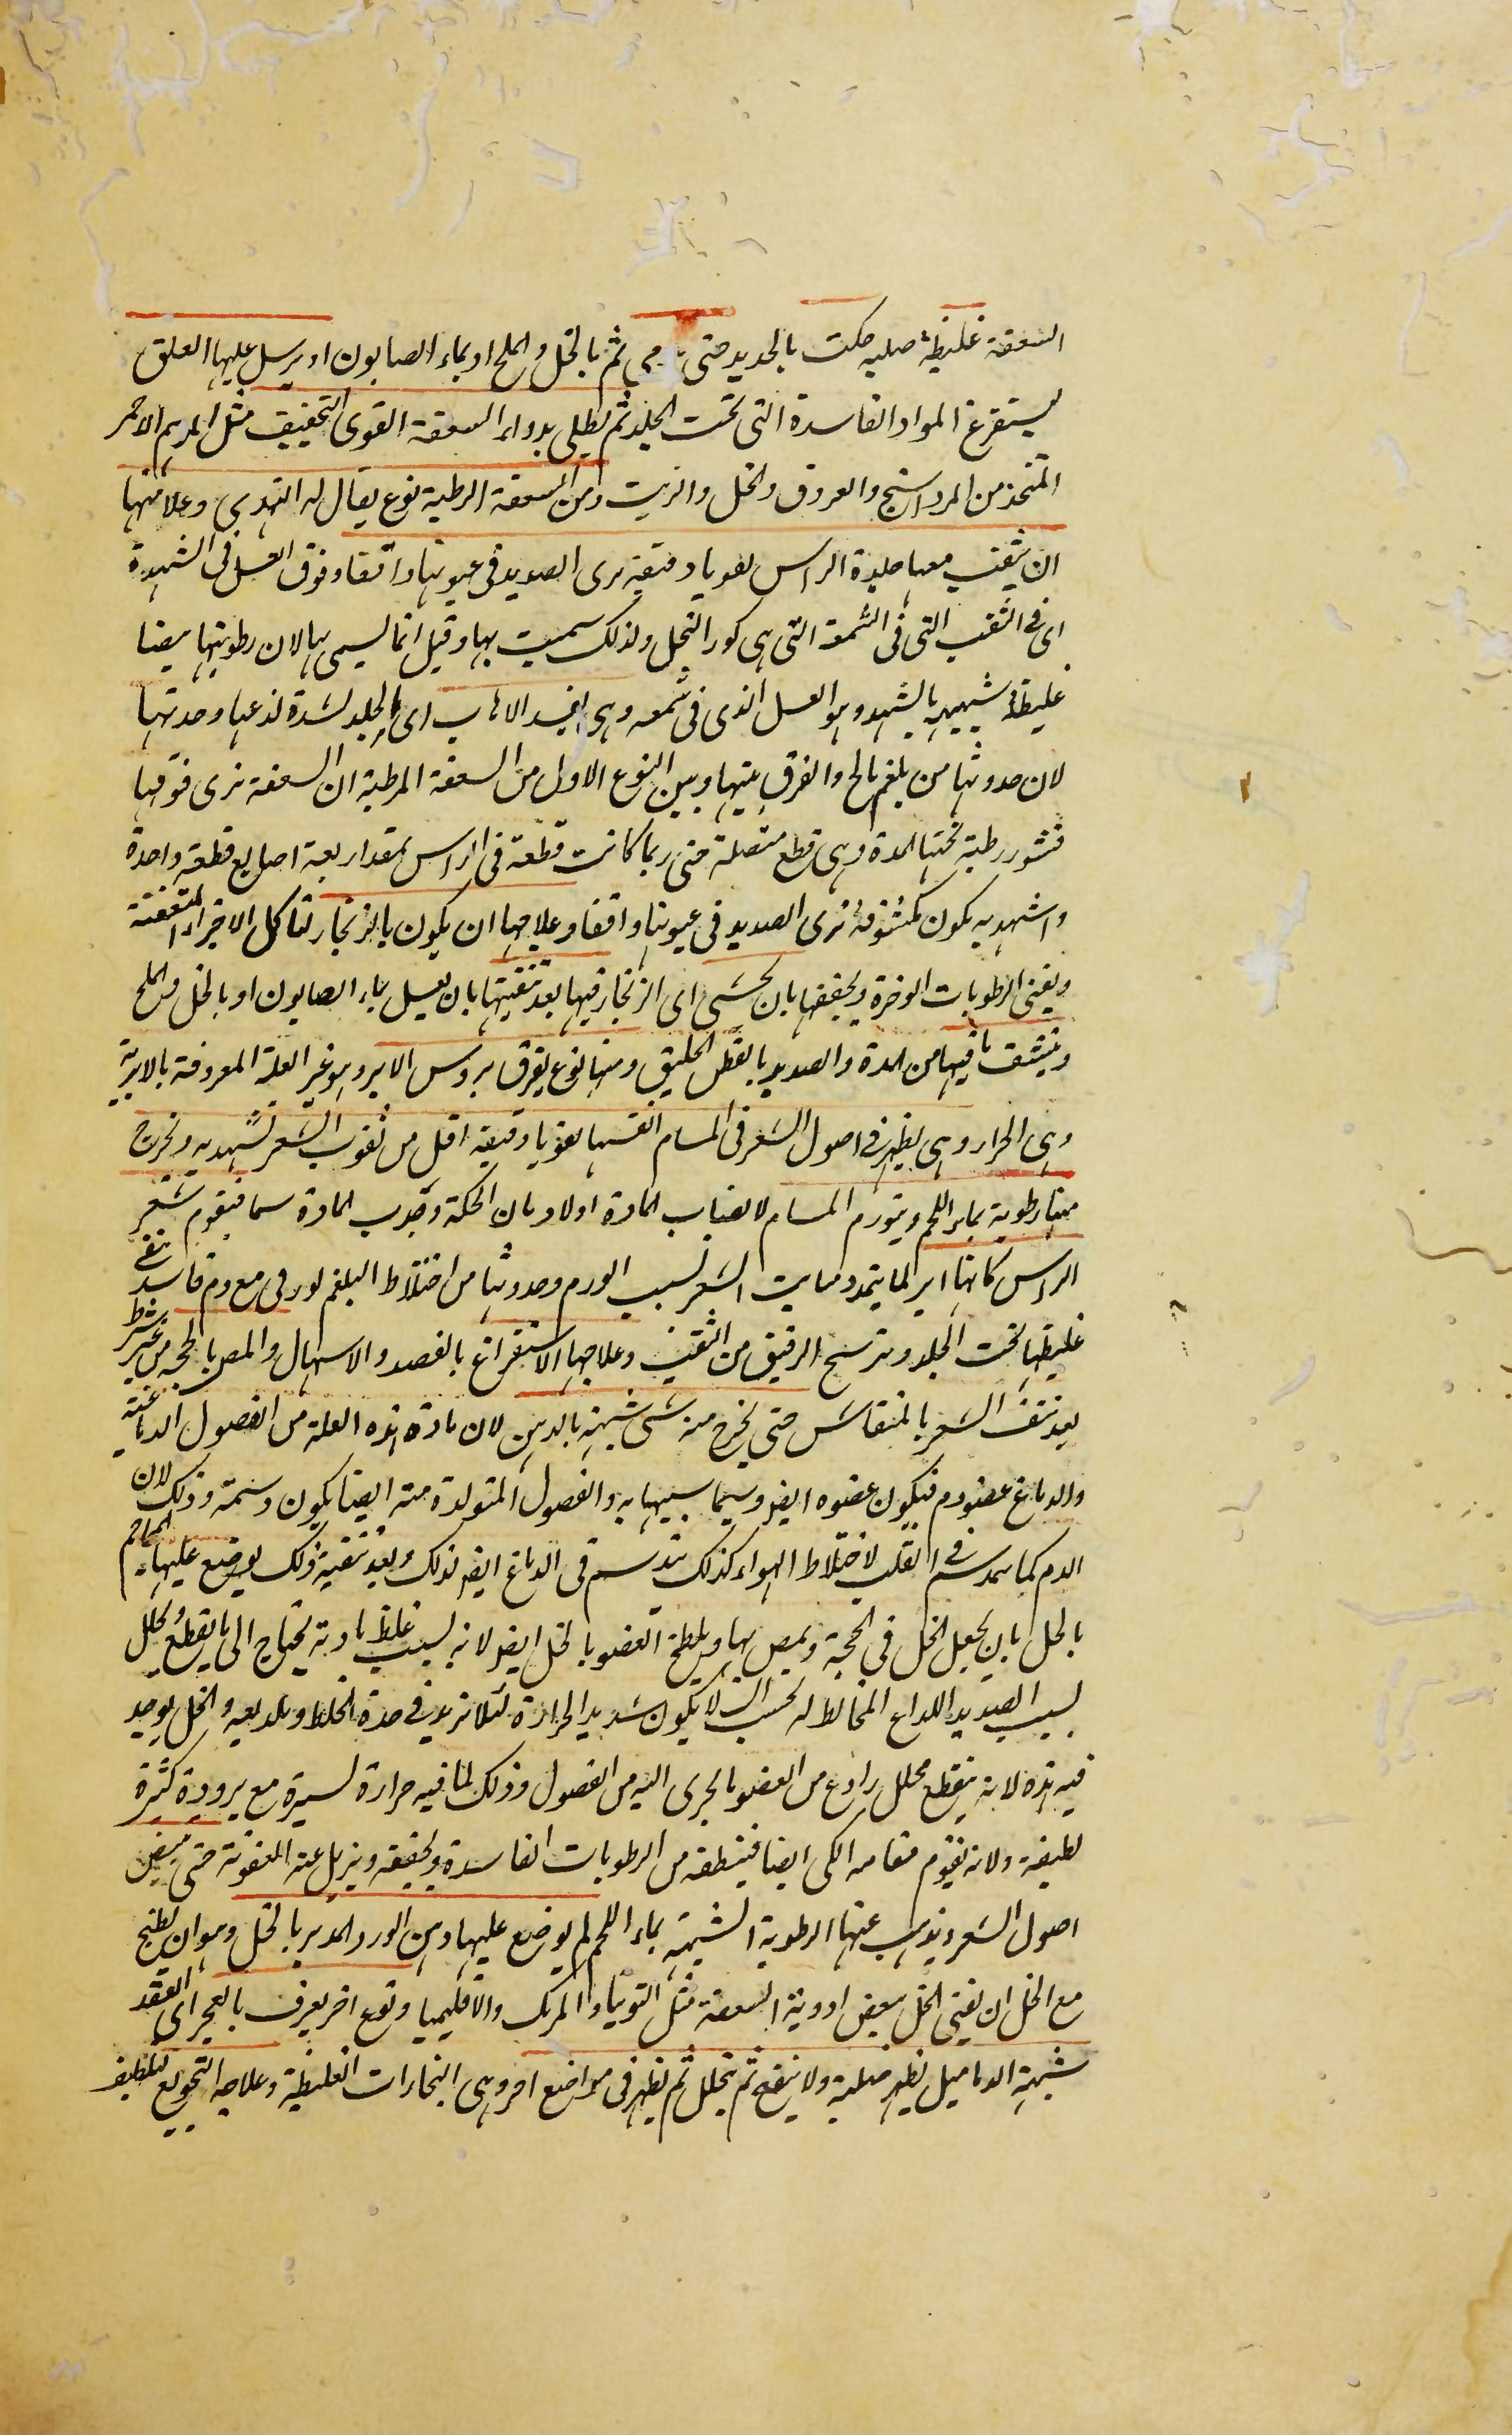 السعفة غليظة صلبه حكت بالحديد حتى يدمى ثم بالخل والملح او بماء الصابون او يرسل عليها العلق
ليستفرغ المواد الفاسدة التى تحت الجلد ثم يطلى بدواء السعفة القوى التجفيف مثل المرهم الاحمر
المتخذ من المرداسنج والعروق والخل والزيت ومن السعفة الرطبة نوع يقال له الشهدى وعلامتها
ان يثقب معها جلدة الراس ثقوبا دقيقة يرى الصديد فى عيونها واقفا وقوف العسل فى الشهدة
اى فى الثقب التى فى الشمعة التى هى كور النحل ولذلك سميت بها وقيل انما يسمى بها لان رطوبتها ايضا
غليظة شبيهه بالشهد وهو العسل الذى فى شمعه وهى افسد الاهاب اى الجلد لشدة لذعها وحدتها
لان حدوثها من بلغم مالح والفرق بينها وبين النوع الاول من السعفة الرطبة ان السعفة ترى فوقها
قشور رطبة تحتها المدة وهى قطع متصلة حتى ربما كانت قطعة فى الراس بمقدار اربعة اصابع قطعة واحدة
والشهديه يكون مكشوفة ترى الصديد فى عيونها واقفا وعلاجها ان يكون بالزنجار لتاكل الاجزاء المتعفنة
ويفنى الرطوبات الوضرة ويجففها بان يحشى اى الزنجار فيها بعد تنقيتها بان يغسل بماء الصابون او بالخل والملح
وينشف ما فيها من المدة والصديد بالقطن الخليق ومنها نوع يعرف بروس الابر وهو غير العلة المعروفة بالابرية
وهى الحزاز وهى يظهر فى اصول الشعر فى المسام انفسها ثقوبا دقيقة اقل من ثقوب الشهديه ويخرج
منها رطوبة بماء اللحم ويتورم المسام لانصباب المادة اولا وبان الحكة وجذب المادة سما فيقوم شعر
الراس كانها ابر لما يتمدد منابت الشعر بسبب الورم وحدوثها من اختلاط البلغم لورقى مع دم فاسد يبقى
غليظها تحت الجلد ويترشح الرقيق من الثقب وعلاجها الاستفراغ بالفصد والاسهال والمص بالمحجمه من غير شرط
بعد نتف الشعر بالمنقاش حتى يخرج منه شى شبيه بالدهن لان مادة هذه العلة من الفضول الدماغية
والدماغ عضو دم فيكون غذوه ايضا دسما شبيها به والفضول المتولدة منه ايضا يكون دسمة وذلك لان
الدم كما يتدسم فى القلب لاختلاط الهواء كذلك يتدسم فى الدماغ ايضا لذلك وبعد تنقية ذلك يوضع عليها المحاجم
بالخل بان يجعل الخل فى المحجمة ويمص بها ويلطخ العضو بالخل ايضا لانه بسبب غلظ مادته يحتاج الى ما يقطع ويحلل
بسبب الصديد اللداع المخالط له يجب ان لا يكون شديد الحرارة لئلا يزيد فى حدة الخلط ولذعه والخل يوجد
فيه هذه لانه يقطع محلل رادع من العضو ما يجرى اليه من الفضول وذلك لما فيه حرارة يسيرة مع برودة كثيرة
لطيفة ولانه يقوم مقامه الكى ايضا فينظفه من الرطوبات الفاسدة ويجففه ويزيل عنه العفونة حتى يبيض
اصول الشعر ويذهب عنها الرطوبة الشبيهة بماء اللحم ثم يوضع عليها دهن الورد المدبر بالخل وهو ان يطبخ
مع الخل ان يفنى الخل ببعض ادوية السعفة مثل التوتيا والمرتك والاقليميا ونوع اخر يعرف بالعجر اى العقد
شبيهة الدماميل يظهر صلبة ولا ينفتح ثم يتحلل ثم يظهر فى مواضع اخر وهى البخارات الغليظة وعلاجه التجويع لتلطيف